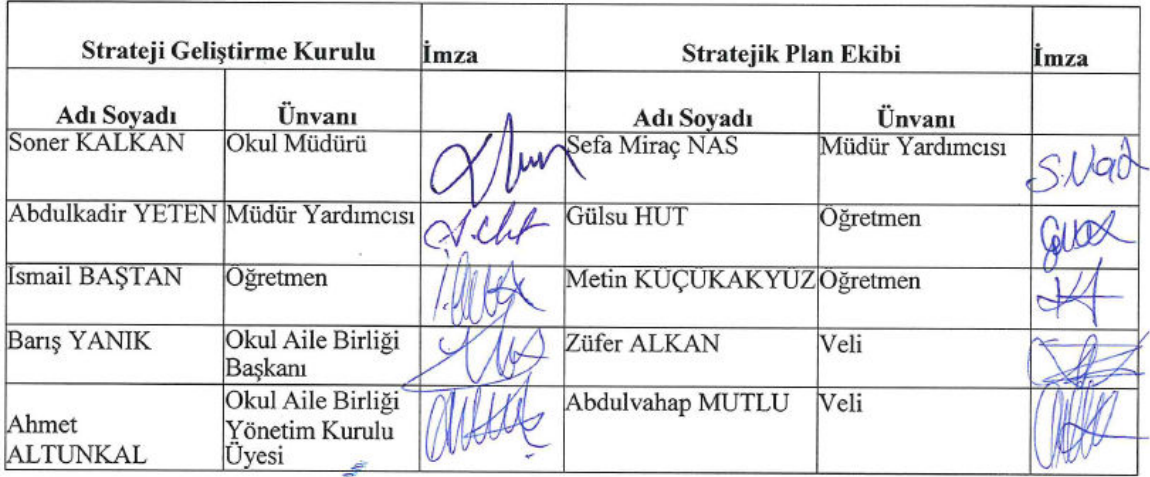 Strateji Geliştirme Kurulu İmza Stratejik Plan Ekibi İmza
Adı Soyadı Ünvanı Adı Soyadı Ünvanı
Soner KALKAN Okul Müdürü Sefa Miraç NAS Müdür Yardımcısı
S.Nas
Abdulkadir YETEN Müdür Yardımcısı Gülsu HUT Öğretmen
İsmail BAŞTAN Öğretmen Metin KÜÇÜKAKYÜZ Öğretmen
Barış YANIK Okul Aile Birliği Züfer ALKAN Veli
Başkanı
Okul Aile Birliği Abdulvahap MUTLU Veli
Ahmet Yönetim Kurulu
ALTUNKAL Üyesi